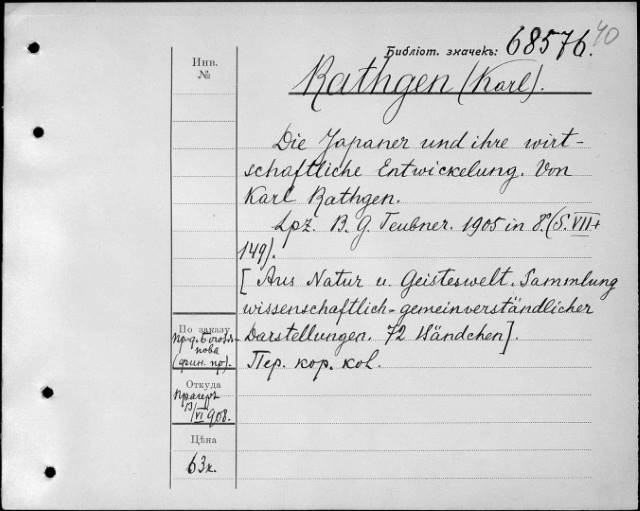 Библіот. значекъ: 68576. 40
Инв.
№
Rathgen (Karl).
Die Japaner und ihre wirt-
schaftliche Entwickelung. Von
Karl Rathgen.
Lpz. B. G. Teubner. 1905 in 8º. (S. VIII+
149).
[Aus Natur u. Geisteswelt. Sammlung
wissenschaftlich-gemeinverständlicher
Darstellungen. 72 Bändchen].
Пер. кор. кол.
По заказу
пр-д. Боголѣ-
пова
(фин. пр).
Откуда
Прагеръ
VI 908.
Цѣна
63к.